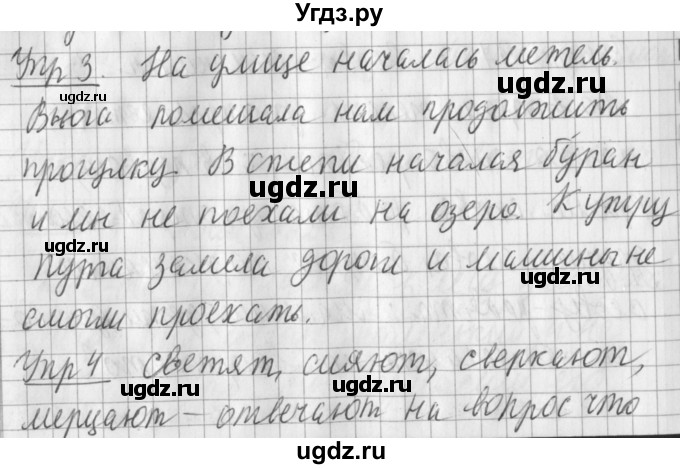 Угдз.ру
Упр 3. На улице началась метель.
ugdz.ru ugdz.ru
Вьюга помешала нам продолжить
ugdz.ru
прогулку. В степи началая бу́ран
ugdz.ru
и мн не поехали на озеро. К
ugdz.ru ugdz.ru
пурга замела дороги и машины не
ugdz.ru
смогли проехать.
ugdz.ru
Упр 4 светят, сияют, сверкают,
ugdz.ru
мерцают – отвечают на вопрос что
ugdz.ru